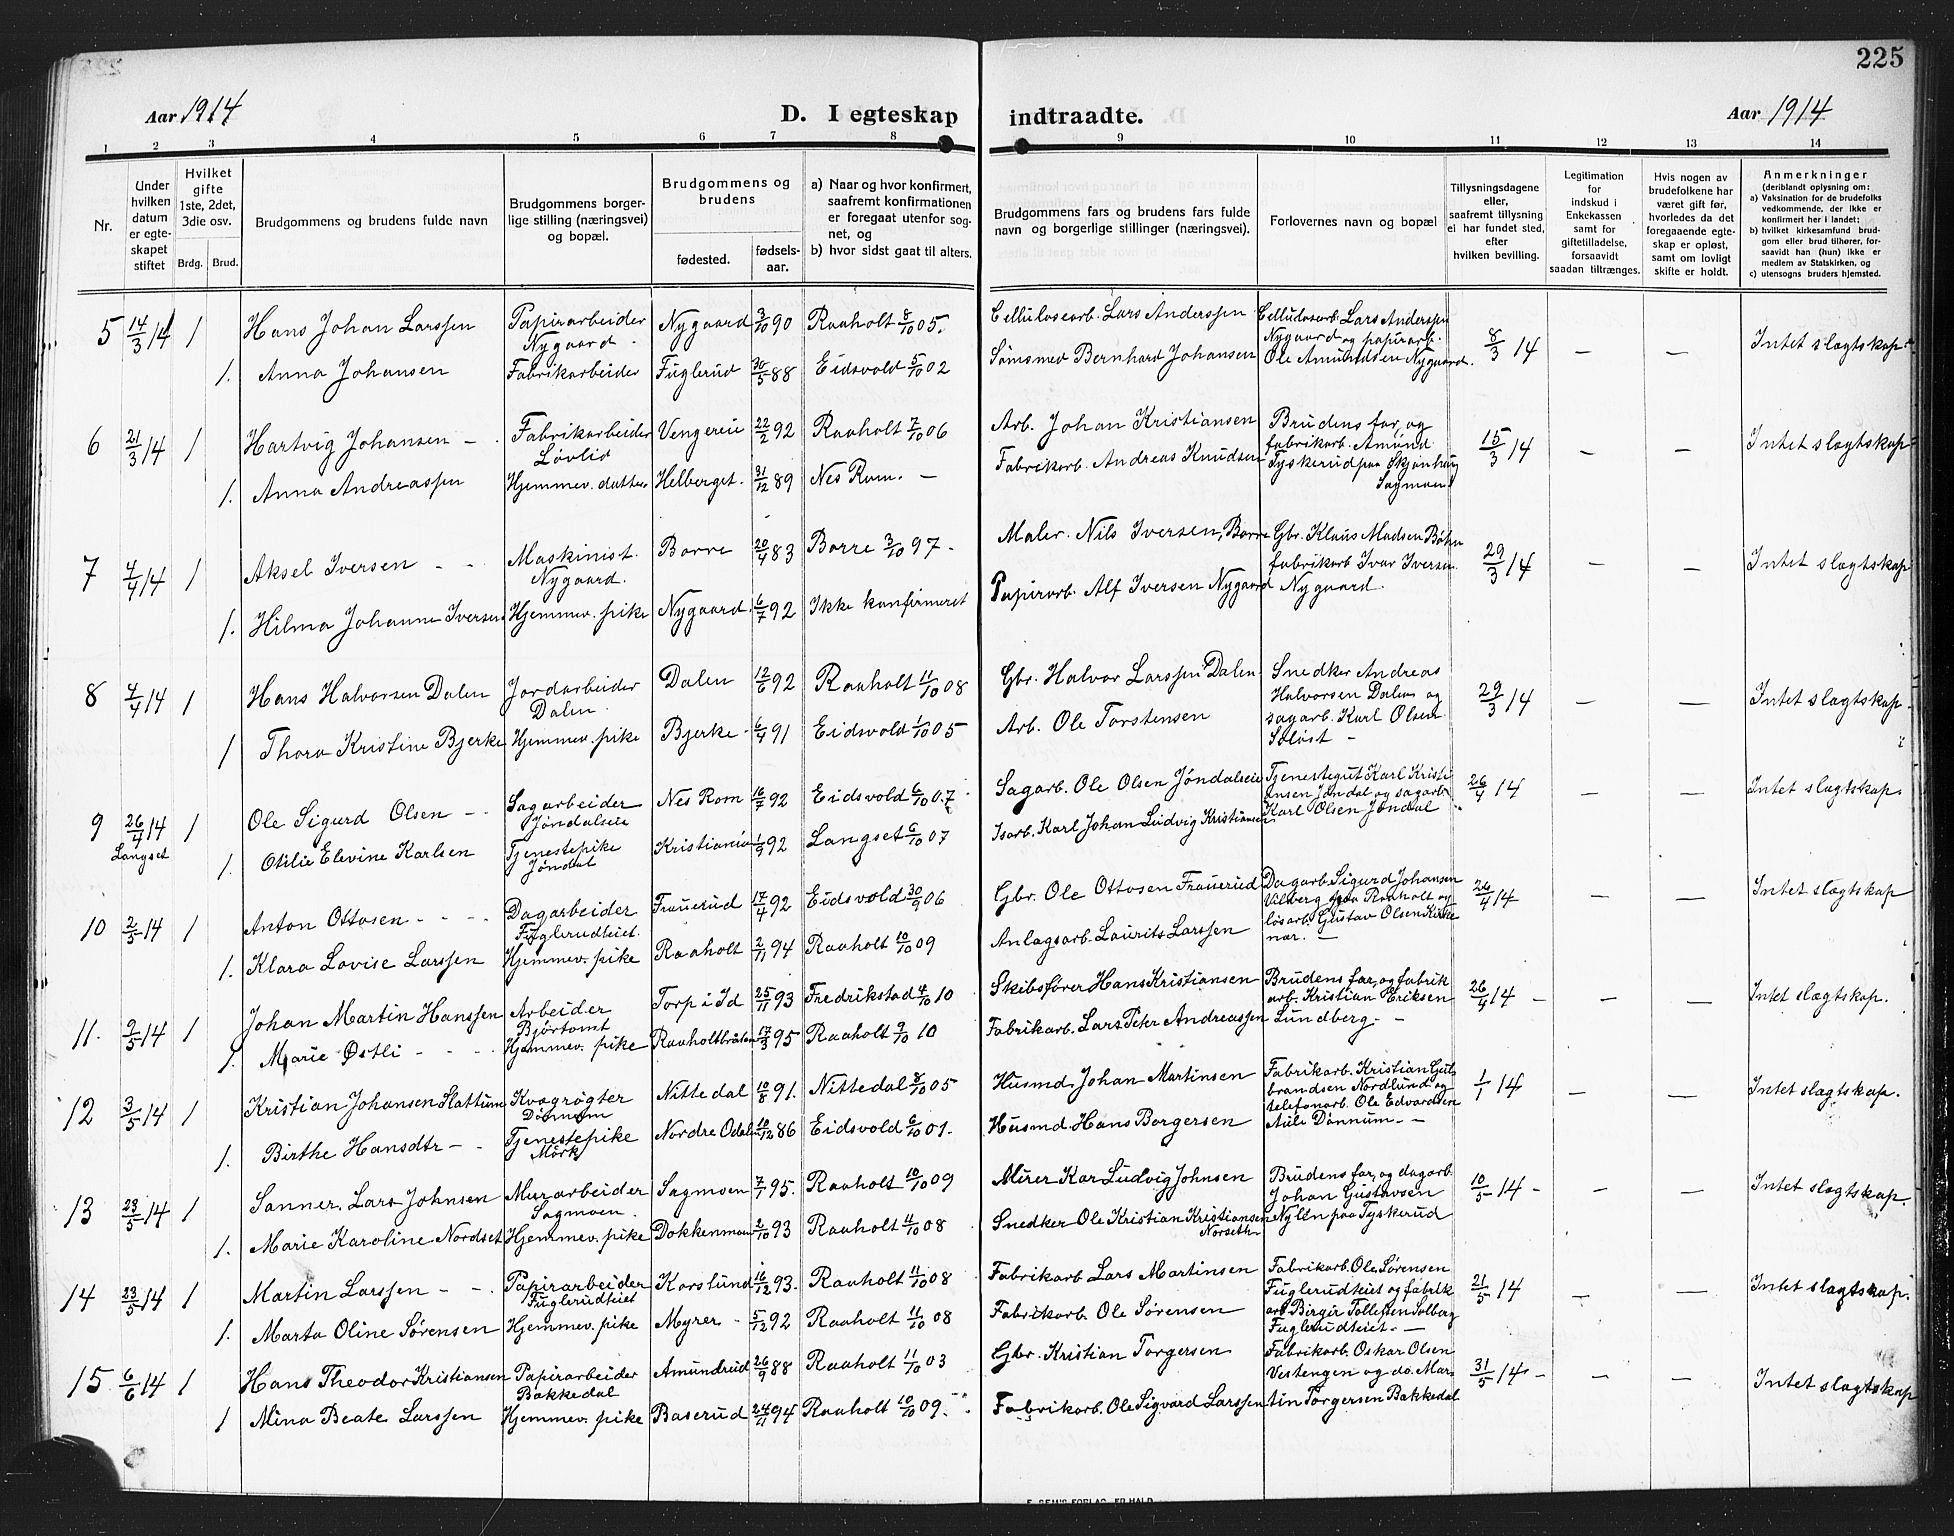 225
Aar 1914
D. I egteskap indtraadte.
Aar 1914
1 2 3 4 5 6 7 8 9 10 11 12 13 14
Nr.
Under hvilken datum er egteskapet stiftet
Hvilket gifte 1ste, 2det, 3die osv.
Brdg. Brud.
Brudgommens og brudens fulde navn
Brudgommens borgerlige stilling (næringsvei) og bopæl.
Brudgommens og brudens
fødested.
fødselsaar.
a) Naar og hvor konfirmert, saafremt konfirmationen er foregaat utenfor sognet, og
b) hvor sidst gaat til alters.
Brudgommens fars og brudens fars fulde navn og borgerlige stillinger (næringsvei).
Forlovernes navn og bopæl
Tillysningsdagene eller, saafremt tillysning ei har fundet sted, efter hvilken bevilling.
Legitimation for indskud i Enkekassen samt for giftetilladelse, forsaavidt saadan tiltrænges.
Hvis nogen av brudefolkene har været gift før, hvorledes da det foregaaende egteskap er opløst, samt om lovligt skifte er holdt.
Anmerkninger
(deriblandt oplysning om:
a) Vaksination for de brudefolks vedkommende, der ikke er konfirmert her i landet;
b) hvilket kirkesamfund brudgom eller brud tilhører, forsaavidt han (hun) ikke er medlem av Statskirken, og
c) utensogns bruders hjemsted.
5 14/3 14 1 Hans Johan Larssen Papirarbeider Nygaard Nygaard 3/10 90 Raaholt 8/10 05. Cellulosearb. Lars Anderssen Cellulosarb. Lars Anderssen Nygaard og papirarb. Ole Amundsen Nygaard. 8/3 14 — — Intet slægtskap.
1. Anna Johansen Fabrikarbeider Fuglerud 30/5 88 Eidsvold 5/10 02 Sömsmed Bernhard Johansen
6 21/3 14 1 Hartvig Johansen — Fabrikarbeider Løvlid Vengereie 22/2 92 Raaholt 7/10 06 Arb. Johan Kristiansen Brudens far, og fabrikarb. Amund Tyskerud paa Skjønhaug Sagmoen 15/3 14 — — Intet slægtskap
1. Anna Andreassen Hjemmev. datter Helberget. 31/12 89 Nes Rom. — Fabrikarb. Andreas Knudsen
7 4/4 14 1 Aksel Iversen - - Maskinist. Nygaard. Borre 20/4 83 Borre 3/10 97. Maler. Nils Iversen, Borre Gbr. Klaus Madsen Böhn fabrikarb Ivar Iversen Nygaard. 29/3 14 — — Intet slægtskap
1. Hilma Johanne Iversen Hjemmev. pike Nygaard. 6/7 92 Ikke konfirmeret Papirarb. Alf Iversen Nygaard
8 4/4 14 1 Hans Halvorsen Dalen Jordarbeider Dalen. Dalen 12/6 92 Raaholt 11/10 08 Gbr. Halvor Larssen Dalen Snedker Andreas Halvorsen Dalen og sagarb. Karl Olsen Soløst — 29/3 14 — — Intet slægtskap.
1 Thora Kristine Bjerke Hjemmev. pike Bjerke 6/4 91 Eidsvold 1/10 05 Arb. Ole Torstensen
9 26/4 14 Langset 1 Ole Sigurd Olsen - - Sagarbeider Jøndalseie Nes Rom 16/7 92 Eidsvold 6/10 07 Sagarb. Ole Olsen Jøndalseie Tjenestegut Karl Kristiansen Jøndal og sagarb. Karl Olsen Jøndal 26/4 14 — — Intet slægtskap.
1. Otilie Elevine Karlsen Tjenestepike Jøndal Kristiania 1/9 92 Langset 6/10 07 Isarb. Karl Johan Ludvig Kristiansen
10 2/5 14 1 Anton Ottosen - - - Dagarbeider Fuglerudteiet. Frauerud 17/4 92 Eidsvold 30/9 06 Gbr. Ole Ottosen Frauerud Dagarb. Sigurd Johansen Vilberg paa Raaholt og løsarb. Gustav Olsen Kirkenær. — 26/4 14 — — Intet slægtskap
1. Klara Lovise Larssen Hjemmev. pike Raaholt 2/11 94 Raaholt 10/10 09 Anlagsarb. Laurits Larssen
11. 2/5 14 1 Johan Martin Hanssen Arbeider Bjørtomt Torp i Id 25/11 93 Fredrikstad 4/10 10 Skibsfører Hans Kristiansen Brudens far, og fabrikarb. Kristian Eriksen Lundberg. — 26/4 14 — — — Intet slægtskap.
1. Marie Østli - - - Hjemmev. pike Raaholtbråten 17/3 95 Raaholt 2/10 10 Fabrikarb. Lars Peter Andreassen
12 3/5 14 1 Kristian Johansen Slattum Kvægrøgter Dønnum Nittedal 10/8 91. Nittedal 8/10 05 Husmd. Johan Martinsen Fabrikarb. Kristian Gulbrandsen Nordlund og telefonarb. Ole Edvardsen Auli Dønnum. — 1/1 14 — — Intet slægtskap.
1. Birthe Hansdtr — - Tjenestepike Mørk Nordre Odal 10/12 86 Eidsvold 6/10 01. Husmd. Hans Borgersen
13 23/5 14 1 Sanner, Lars Johnsen Murarbeider Sagmoen. Sagmoen 7/1 95. Raaholt 10/10 09 Murer Kar Ludvig Johnsen Brudens far, og dagarb. Johan Gustavsen Nylen paa Tyskerud 10/5 14 — — — Intet slægtskap.
1. Marie Karoline Nordset Hjemmev. pike Dokkenmoen 2/10 93 Raaholt 11/10 08 Snedker Ole Kristian Kristiansen Norseth
14 23/5 14 1 Martin Larssen - - Papirarbeider Fuglerudteiet Korslund 16/12 93. Raaholt 11/10 08 Fabrikarb Lars Martinsen Fabrikarb. Ole Sørensen Fuglerudteiet og fabrikarb. Birger Tollefsen Solberg Fuglerudteiet. — 21/5 14 — — Intet slægtskap.
1. Marta Oline Sørensen Hjemmev. pike Myrer - 5/12 92 Raaholt 11/10 08 Fabrikarb. Ole Sørensen
15 6/6 14 1 Hans Theodor Kristiansen Papirarbeider Bakkedal Amundrud 26/9 88 Raaholt 11/10 03 Gbr. Kristian Torgersen Fabrikarb. Oskar Olsen Vestengen og do. Martin Torgersen Bakkedal 31/5 14 — — — Intet slægtskap
1 Mina Beate Larssen Hjemmev. pike Baserud 24/11 94 Raaholt 10/10 09. Fabrikarb. Ole Sigvard Larssen